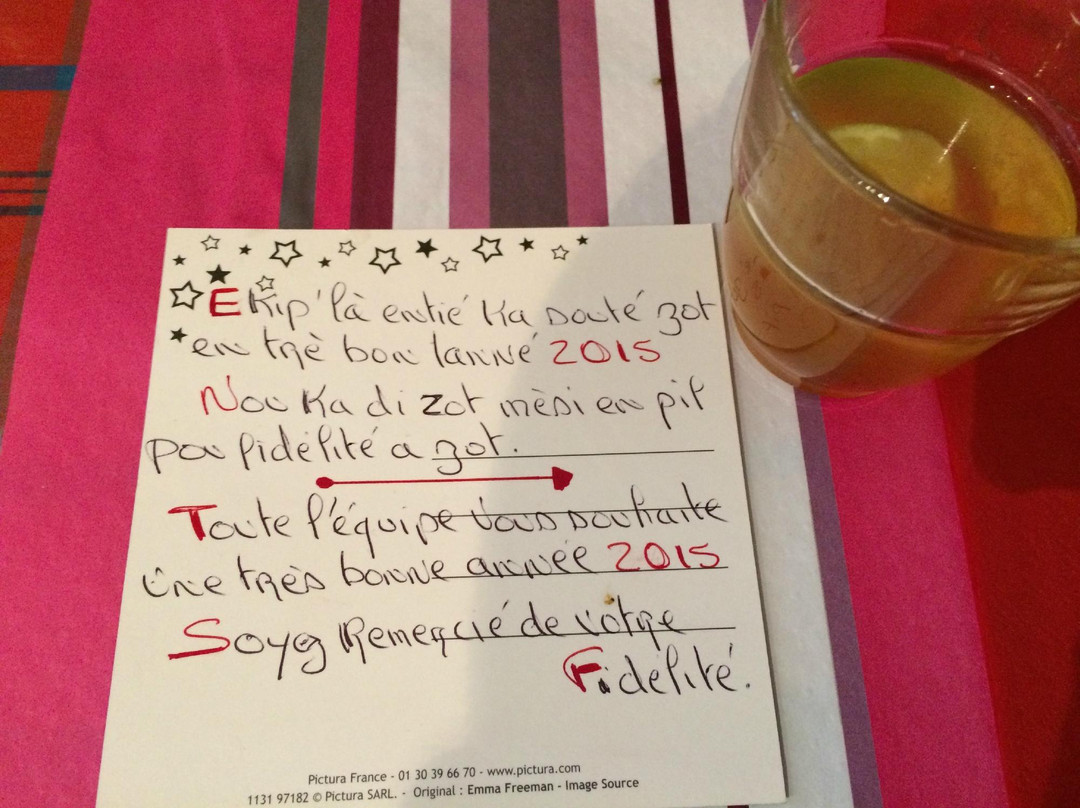 Ekip' là entié Ka souté zot
en trè bon lanné 2015
Nou Ka di zot mèsi en pil
pou fidélité a zot.
Toute l'équipe vous souhaite
Une très bonne année 2015
Soyez Remercié de votre
Fidélité.
Pictura France - 01 30 39 66 70 - www.pictura.com
1131 97182 © Pictura SARL. - Original : Emma Freeman - Image Source